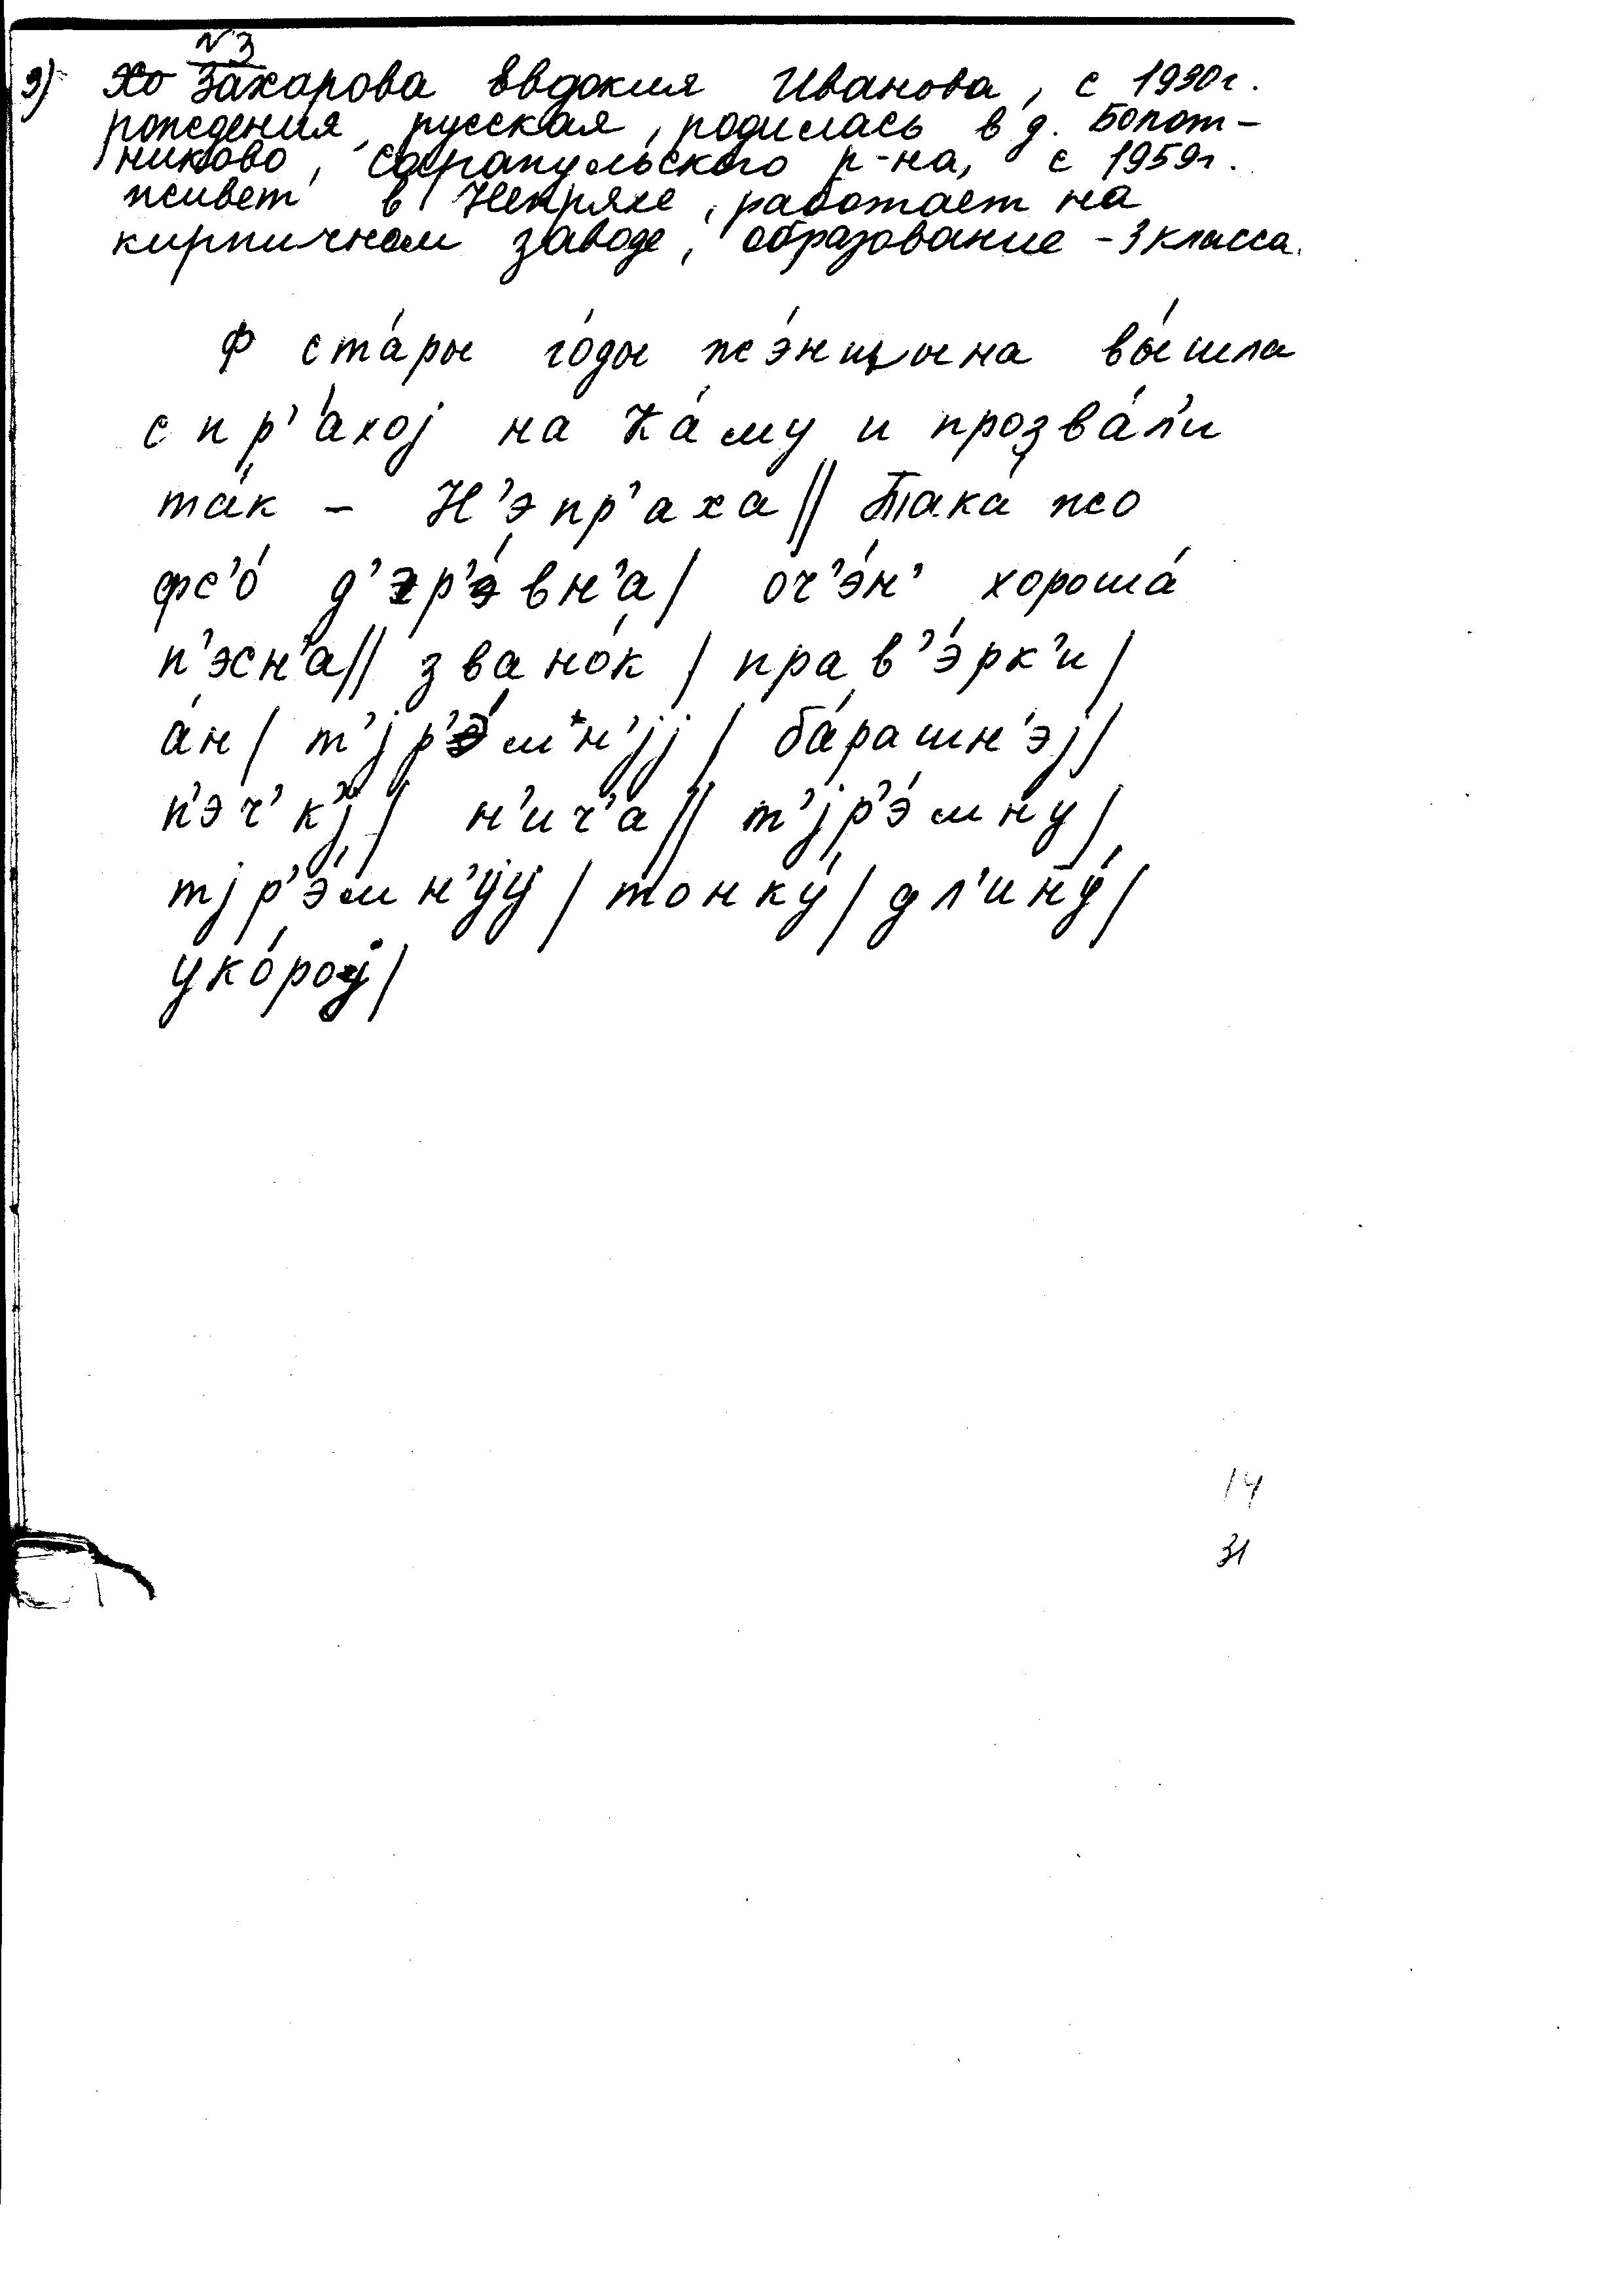 N3
3) Захарова Евдокия Иванова, с 1930г.
рождения, русская, родилась в д. Болот-
никово, Сарапульского р-на, с 1959г.
живет в Непряхе, работает на
кирпичном заводе, образование - 3 класса.
Ф ста́ры го́ды жэ́нщына вы́шла
с пр'а́хој на Ка́му и прозва́л'и
та́к - Н'э́пр'аха || Така́ жо
фс'о́ д'эр'э́вн'а | оч'э́н' хороша́
п'э́сн'а || звано́к | прав'э́рк'и |
а́н | т'јр'э́м'н'јј | ба́рашн'эј |
п'эч'к'ј | н'ич'а́ || т'јр'э́мну |
тјр'э́мн'ују | тонку́ | дл'ину́ |
уко́рој |
14
31